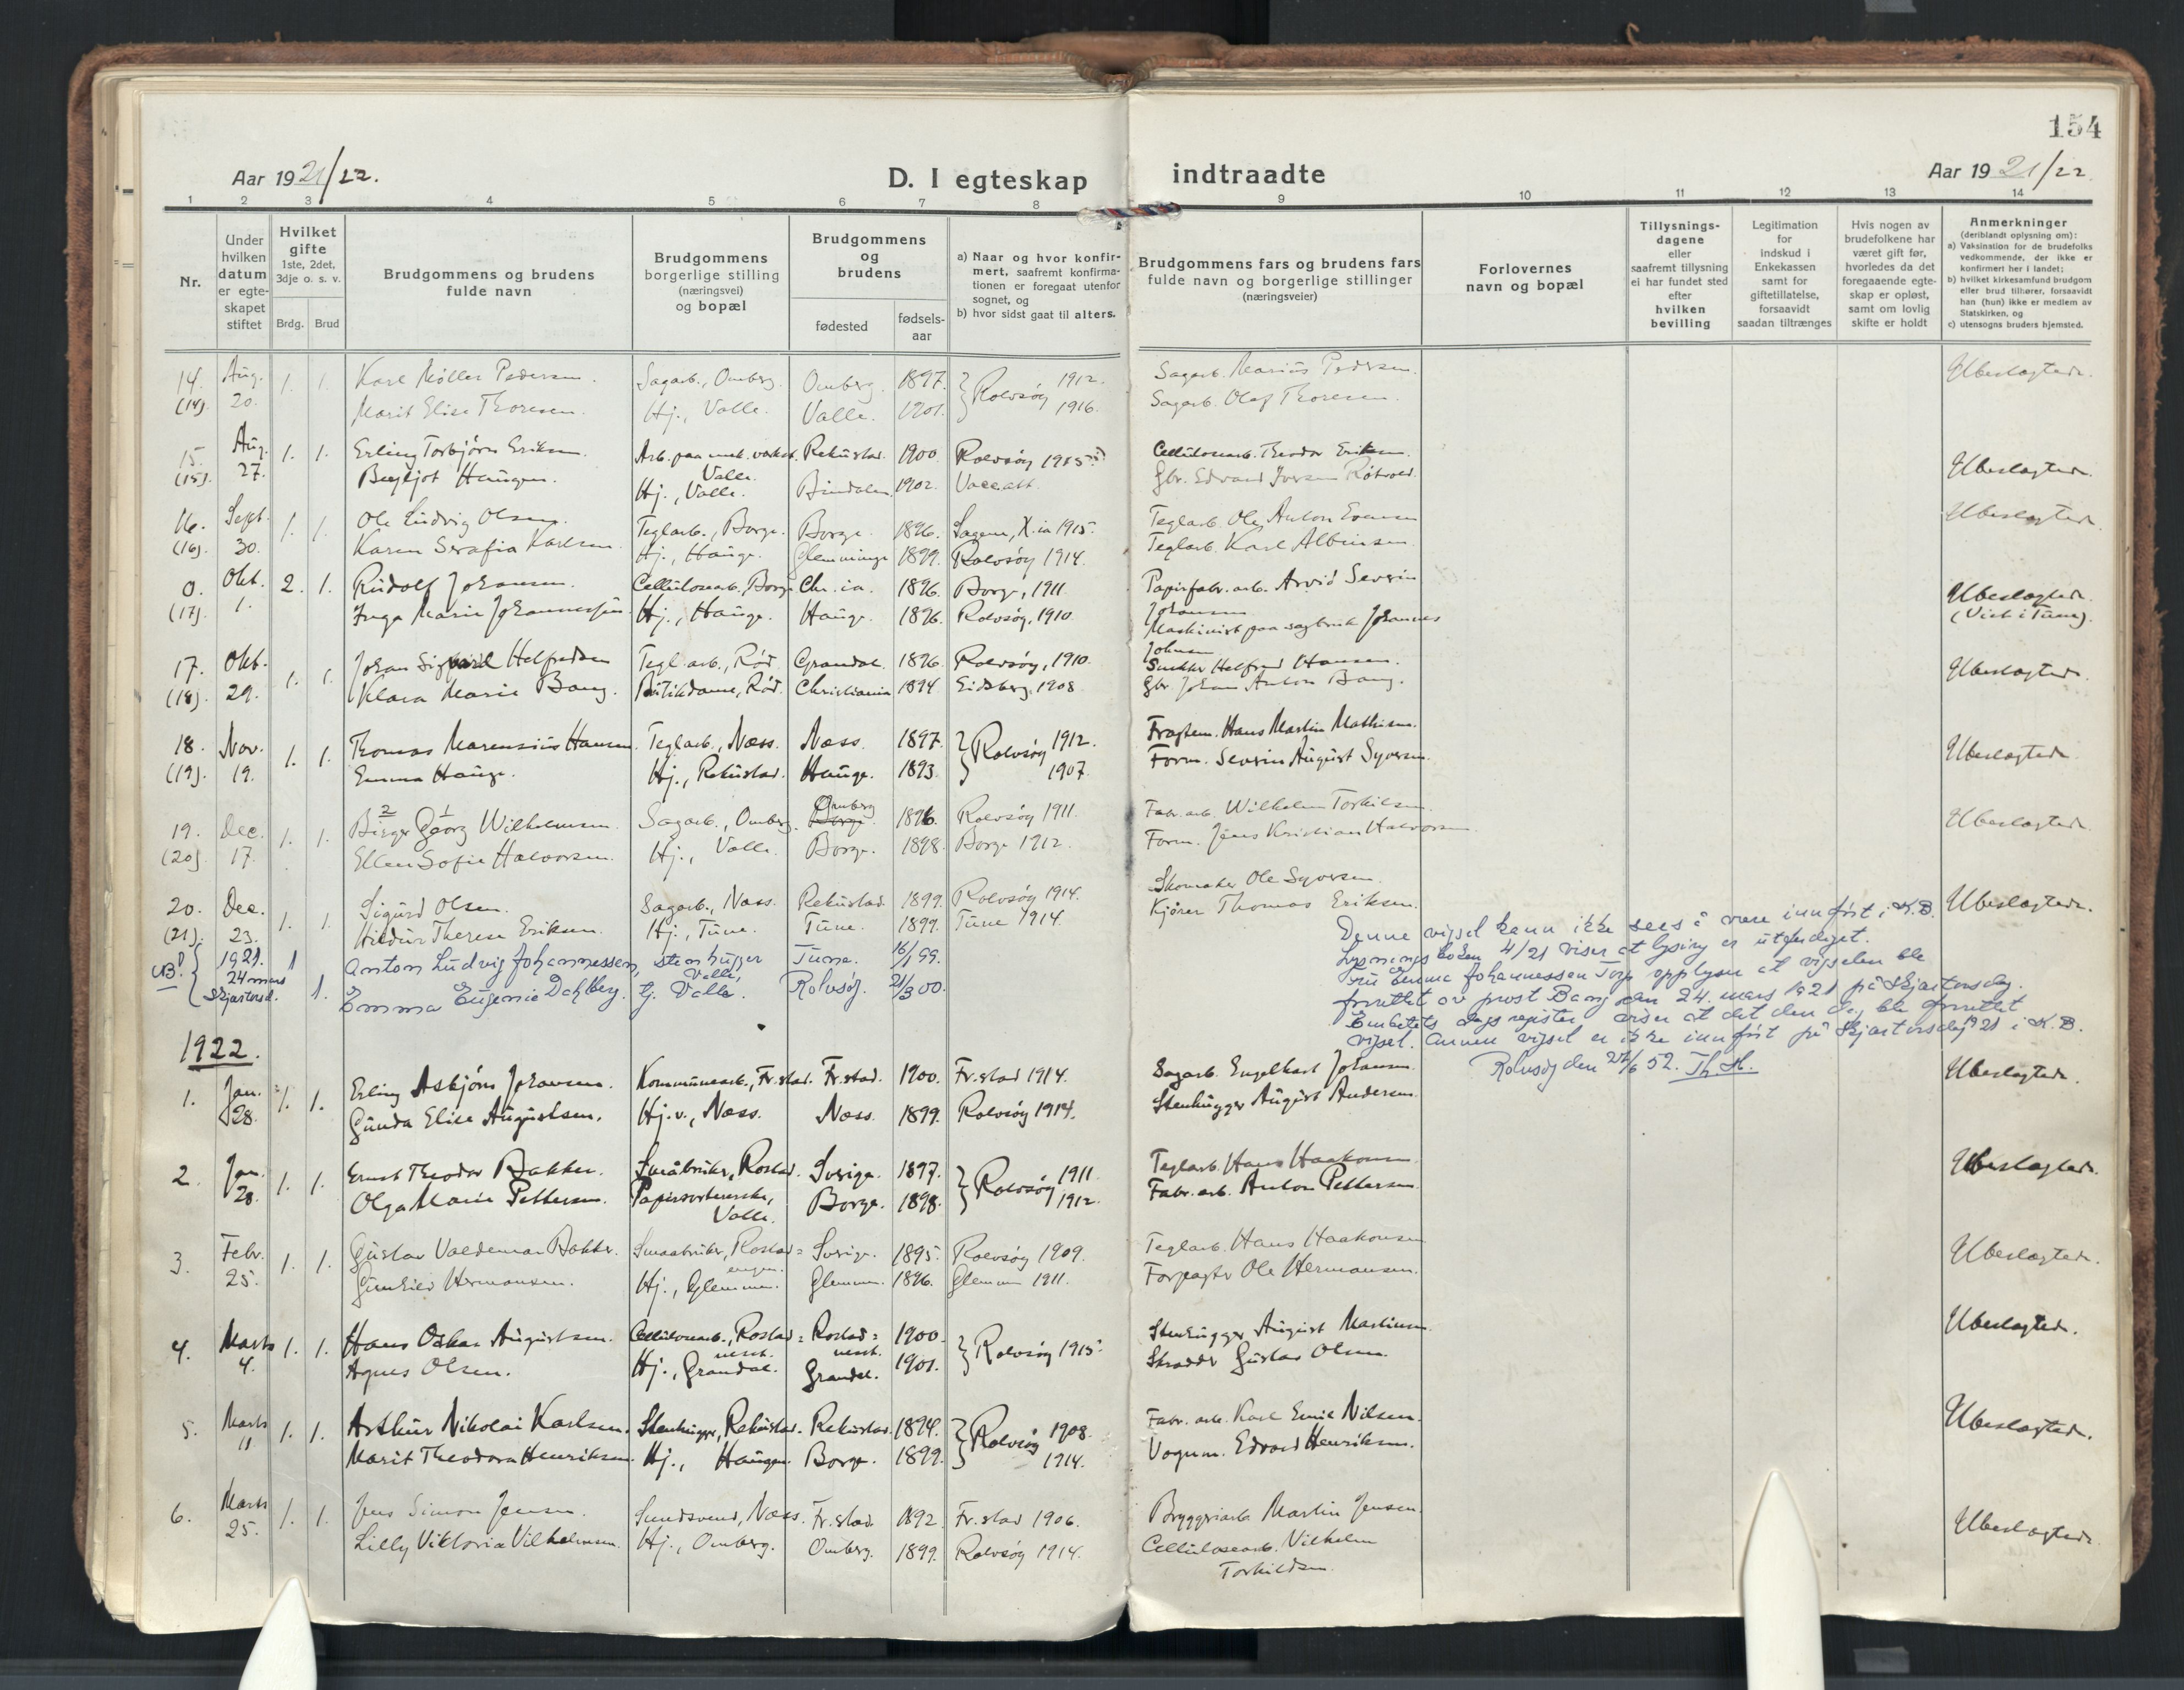 154
Aar 1921/22.
D. I egteskap indtraadte
Aar 1921/22
1 2 3 4 5 6 7 8 9 10 11 12 13 14
Nr.
Under hvilken datum er egteskapet stiftet
Hvilket gifte 1ste, 2det, 3dje o. s. v.
Brdg. Brud
Brudgommens og brudens fulde navn
Brudgommens borgerlige stilling (næringsvei) og bopæl
Brudgommens og brudens
fødested
fødselsaar
a) Naar og hvor konfirmert, saafremt konfirmationen er foregaat utenfor sognet, og
b) hvor sidst gaat til alters.
Brudgommens fars og brudens fars fulde navn og borgerlige stillinger (næringsveier)
Forlovernes navn og bopæl
Tillysningsdagene eller saafremt tillysning ei har fundet sted efter hvilken bevilling
Legitimation for indskud i Enkekassen samt for giftetillatelse, forsaavidt saadan tiltrænges
Hvis nogen av brudefolkene har været gift før, hvorledes da det foregaaende egteskap er opløst, samt om lovlig skifte er holdt
Anmerkninger (deriblandt oplysning om):
a) Vaksination for de brudefolks vedkommende, der ikke er konfirmert her i landet;
b) hvilket kirkesamfund brudgom eller brud tilhører, forsaavidt han (hun) ikke er medlem av Statskirken, og
c) utensogns bruders hjemsted.
14. Aug. 1. 1. Karl Møller Pedersen. Sagarb., Omberg. Omberg. 1897. } Rolvsøy 1912. Sagarb. Marius Pedersen. Ubeslægtede.
(14). 20. Marit Elise Thoresen. Hj., Valle. Valle. 1901. 1916. Sagarb. Olaf Thoresen.
15. Aug. 1. 1. Erling Torbjörn Eriksen. Arb. paa mek. verkst. Valle. Rekustad. 1900. Rolvsøy 1915. Cellulosearb. Theodor Eriksen.
(15). 27. Bergljot Haugen. Hj., Valle. Bindalen. 1902. Gbr. Edvard Iversen Ubeslægtede.
16. Sept. 1. 1. Ole Ludvig Olsen. Teglarb., Borge. Borge. 1896. Sagene, X.ia 1915. Teglarb. Ole Anton Evensen Ubeslægtede.
(16). 30. Karen Serafia Karlsen. Hj., Hauge. Glemminge 1899. Rolvsøy 1914. Teglarb. Karl Albinsen.
0. Okt. 2. 1. Rudolf Johansen. Cellulosearb., Borge Chr.ia. 1896. Borge, 1911. Papirfabr. arb. Arvid Severin Johansen Ubeslægtede.
(17). 1. Inga Marie Johannessen Hj., Hauge. Hauge. 1896. Rolvsøy, 1910. Maskinist paa sagbruk Johannes Johnsen (Viet i Tune).
17. Okt. 1. 1. Johan Sigvard Helfredsen Tegl.arb., Rød. Grandal. 1896. Rolvsøy, 1910. Snekker Helfred Hansen. Ubeslægtede.
(18). 29. Klara Marie Bang. Butikdame, Rød. Christiania 1894. Eidsberg, 1908. Gbr. Johan Anton Bang.
18. Nov. 1. 1. Thomas Marensius Hansen. Teglarb., Næss. Næss. 1897. } Rolvsøy 1912. Fragtem. Hans Martin Mathisen. Ubeslægtede.
(19). 19. Emma Hauge. Hj., Rekustad. Hauge. 1893. 1907. Form. Severin August Syversen.
19. Dec. 1. 1. Birger Georg Wilhelmsen. Sagarb., Omberg. Omberg Borge. 1896. Rolvsøy 1911. Fabr.arb. Wilhelm Torkilsen. Ubeslægtede.
(20). 17. Ellen Sofie Halvorsen. Hj., Valle. Borge. 1898. Borge 1912. Form. Jens Kristian Halvorsen
20. Dec. 1. 1. Sigurd Olsen. Sagarb., Næss. Rekustad. 1899. Rolvsøy 1914. Skomaker Ole Syversen. Ubeslægtede.
(21). 23. Hildur Therese Eriksen. Hj., Tune. Tune. 1899. Tune 1914. Kjører Thomas Eriksen.
NB! 1921. 1 Anton Ludvig Johannessen, stenhugger Valle, Tune. 16/1 99.
24 mars Skjærtorsd. 1. Emma Eugenie Dahlberg. hj. Valle. Rolvsøy. 21/3 00.
Denne vigsel kann ikke sees å være innført i K.B.
Lysningsboken 4/21 viser at lysing er utferdiget.
Fru Emma Johannessen Torp opplyser at vigselen ble
forrettet av prost Bang den 24. mars 1921 på skjærtorsdag.
Embetets dagsregister viser at det den d. ble forrettet
vigsel. Annen vigsel er ikke innført på Skjærtorsdag 1921 i K.B.
Rolvsøy den 27/6 52. Th. H.
1922.
1. Jan. 1. 1. Erling Asbjörn Johansen. Kommunearb., Fr.stad. Fr.stad. 1900. Fr.stad 1914. Sagarb. Engelhart Johansen. Ubeslægtede.
28. Gunda Elise Augustsen. Hj.v., Næss. Næss. 1899. Rolvsøy 1914. Stenhugger August Andersen.
2. Jan. 1. 1. Ernst Theodor Bakken. Småbruker, Rostad. Sverige. 1897. } Rolvsøy 1911. Teglarb. Hans Haakonsen Ubeslægtede.
28. Olga Marie Pettersen. Papirsorterske, Valle. Borge. 1898. 1912. Fabr.arb. Anton Pettersen.
3. Febr. 1. 1. Gustav Valdemar Bakken. Smaabruker, Rostadengen. Sverige. 1895. Rolvsøy 1909. Teglarb. Hans Haakonsen Ubeslægtede.
25. Gunhild Hermansen. Hj., Glemmen. Glemm. 1896. Glemmen 1911. Forpagter Ole Hermansen.
4. Marts 1. 1. Hans Oskar Augustsen. Cellulosearb., Rostad= Rostad= 1900. } Rolvsøy 1915. Stenhugger August Martinsen. Ubeslægtede.
4. Agnes Olsen. Hj., Grandal. Grandal. 1901. Skrædder Gustav Olsen.
5. Marts 1. 1. Arthur Nikolai Karlsen. Stenhugger, Rekustad. Rekustad. 1894. } Rolvsøy 1908. Fabr. arb. Karl Emil Nilsen. Ubeslægtede.
11 Marit Theodora Henriksen. Hj., Haugen. Borge. 1899. 1914. Vognm. Edvard Henriksen.
6. Marts 1. 1. Jens Simon Jensen. Næss. Fr.stad. 1892. Fr.stad 1906. Bryggeriarb. Martin Jensen. Ubeslægtede.
25. Lilly Viktoria Vilhelmsen. Hj., Omberg. Omberg. 1899. Rolvsøy 1914. Cellulosearb. Vilhelm Torkildsen.